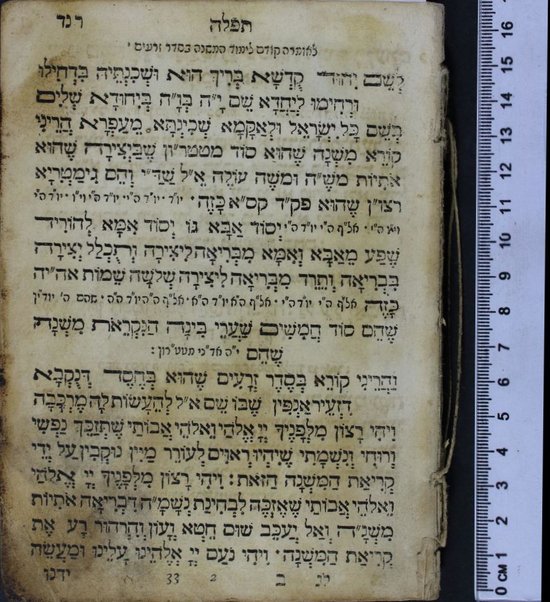 תפלה רנד
לאומרה קודם לימוד המשנה בסדר זרעים
לְשֵׁם יִחוּד קֻדְשָׁא בְּרִיךְ הוּא וּשְׁכִנְתֵּיהּ בִּדְחִילוּ
וּרְחִימוּ לְיַחֲדָא שֵׁם י"ה בו"ה בְּיִחוּדָא שְׁלִים
בְּשֵׁם כָּל יִשְׂרָאֵל וּלְאַקְמָא שְׁכִינְתָּא מֵעַפְרָא הֲרֵינִי
קוֹרֵא מִשְׁנָה שֶׁהוּא סוֹד מטטרו"ן שֶׁבַּיְצִירָה שֶׁהוּא
אֹתִיּוֹת מש"ה ומשה עוֹלֶה א"ל שד"י וְהֵם גִּימַטְרִיָּא
רצו"ן שֶׁהוּא פק"ד קס"א כָּזֶה י' יו"ד
יְסוֹד אַבָּא גוֹ יְסוֹד אִמָּא לְהוֹרִיד
שֶׁפַע מֵאַבָּא וְאִמָּא מִבְּרִיאָה לִיצִירָה וְתִכָּלֵל יְצִירָה
בִּבְרִיאָה וְתֵרֵד מִבְּרִיאָה לִיצִירָה שְׁלֹשָׁה שֵׁמוֹת אהי"ה
כָּזֶה אל"ף ה"י יו"ד ה"י אל"ף ה"א יו"ד ה"א אל"ף ה"ה יו"ד ה"ה שהם
שֶׁהֵם סוֹד חֲמִשִּׁים שַׁעֲרֵי בִינָה הַנִּקְרֵאת מִשְׁנָה
שֶׁהֵם י"ה אד"ני מטטרון :
וַהֲרֵינִי קוֹרֵא בְּסֵדֶר זְרָעִים שֶׁהוּא בְּחֶסֶד דְּנוּקְבָא
דִזְעֵיר אַנְפִּין שֶׁבּוֹ שֵׁם א"ל לְהֵעָשׂוֹת לָהּ מֶרְכָּבָה
וִיהִי רָצוֹן מִלְּפָנֶיךָ יְיָ אֱלֹהַי וֵאלֹהֵי אֲבוֹתַי שֶׁתְּזַכֵּךְ נַפְשִׁי
וְרוּחִי וְנִשְׁמָתִי שֶׁיִּהְיוּ רְאוּיִם לְעוֹרֵר מַיִין נוּקְבִין עַל יְדֵי
קְרִיאַת הַמִּשְׁנָה הַזֹּאת : וִיהִי רָצוֹן מִלְּפָנֶיךָ יְיָ אֱלֹהַי
וֵאלֹהֵי אֲבוֹתַי שֶׁאֶזְכֶּה לִבְחִינַת נְשָׁמָ"ה דִבְרִיאָה אֹתִיּוֹת
מִשְׁנָ"ה וְאַל יְעַכֵּב שׁוּם חֵטְא וְעָוֹן וְהִרְהוּר רָע אֶת
קְרִיאַת הַמִּשְׁנָה : וִיהִי נֹעַם יְיָ אֱלֹהֵינוּ עָלֵינוּ וּמַעֲשֵׂה
ב 33 2 ידנו